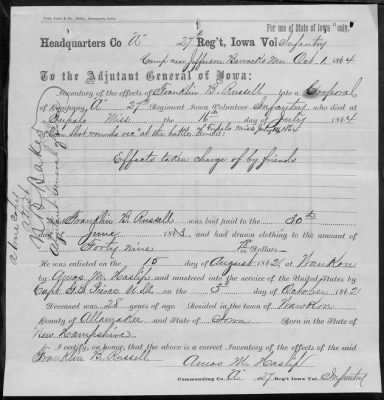 For use of State of Iowa "only."
Headquarters Co "A" 27th Reg't, Iowa Vol Infantry
Camp near Jefferson Barracks Mo. Oct. 1, 1864
To the Adjutant General of Iowa:
Inventory of the effects of Franklin B. Russell late a Corporal
of Company "A" 27th Regiment Iowa Volunteer Infantry who died at
Tupelo Miss the 16th day of July 1864
wounds rec'd at the battle of Tupelo Miss July 1864
Effects taken charge of by friends
Franklin B. Russell was last paid to the 30th
day of June 1863, and had drawn clothing to the amount of
Forty nine Dollars
He was enlisted on the 15 day of August 1862, at Waukon
by Amos M. Haslip and mustered into the service of the United States by
Capt. on the 3rd day of October 1862
Deceased was 28 years of age. Resided in the town of Waukon
County of Allamakee and State of Iowa Born in the State of
New Hampshire
I certify, on honor, that the above is a correct Inventory of the effects of the said
Franklin B. Russell
Amos M. Haslip
Commanding Co. "A" 27 Reg't Iowa Vol. Infantry